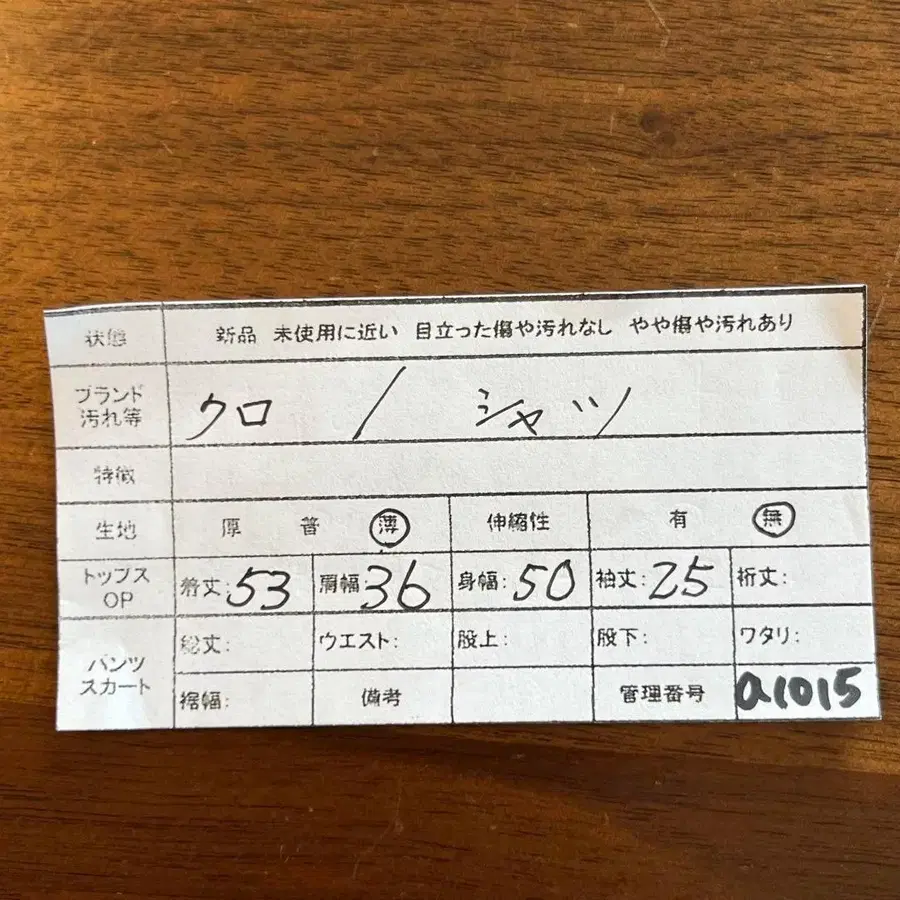 状態 新品 未使用に近い 目立った傷や汚れなし やや傷や汚れあり
ブランド
汚れ等 クロ / シャツ
特徴
生地 厚 普 薄 伸縮性 有 無
トップス
OP 着丈:53 肩幅:36 身幅:50 袖丈:25 裄丈:
パンツ
スカート 総丈: ウエスト: 股上: 股下: ワタリ:
裾幅: 備考 管理番号 a1015